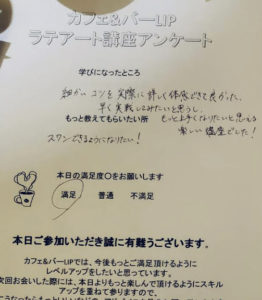 カフェ&バーLIP
ラテアート講座アンケート
学びになったところ
細かいコツを実際に詳しく体感できて良かった。
早く実践してみたいと思うし、
もっと教えてもらいたい所
もっと上手くなりたいと思える
楽しい講座でした!
スワンできるようになりたい!
本日の満足度〇をお願いします
満足 普通 不満足
本日ご参加いただき誠に有難うございます。
カフェ&バーLIPでは、今後もっとご満足頂けるように
レベルアップをしたいと思っています。
次回お会いした際には、本日よりもっと楽しんで頂けるようにスキル
アップを重ねて参りますので、